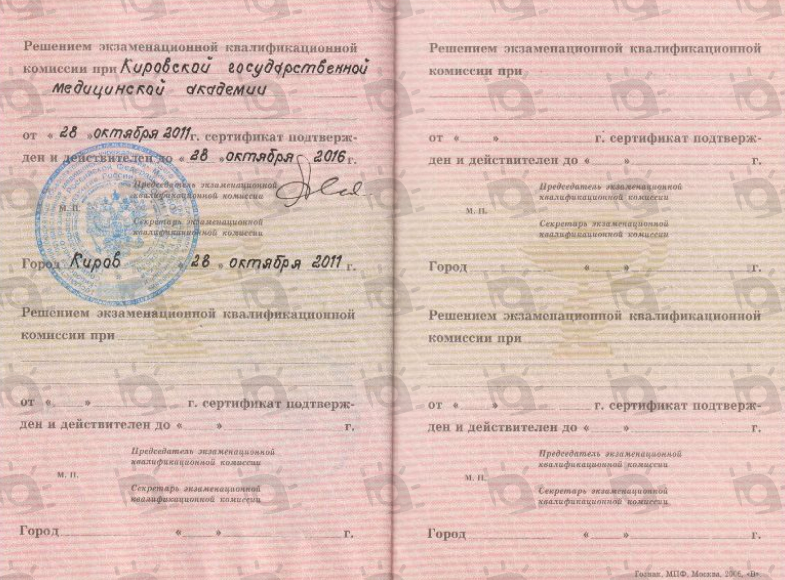 Решением экзаменационной квалификационной
комиссии при Кировской государственной
медицинской академии
от « 28 » октября 2011 г. сертификат подтверж-
ден и действителен до « 28 » октября 2016 г.
Председатель экзаменационной
квалификационной комиссии
М. П.
Секретарь экзаменационной
квалификационной комиссии
Город Киров « 28 » октября 2011 г.
Решением экзаменационной квалификационной
комиссии при
от « » г. сертификат подтверж-
ден и действителен до « » г.
Председатель экзаменационной
квалификационной комиссии
М. П.
Секретарь экзаменационной
квалификационной комиссии
Город « » г.
Решением экзаменационной квалификационной
комиссии при
от « » г. сертификат подтверж-
ден и действителен до « » г.
Председатель экзаменационной
квалификационной комиссии
М. П.
Секретарь экзаменационной
квалификационной комиссии
Город « » г.
Решением экзаменационной квалификационной
комиссии при
от « » г. сертификат подтверж-
ден и действителен до « » г.
Председатель экзаменационной
квалификационной комиссии
М. П.
Секретарь экзаменационной
квалификационной комиссии
Город « » г.
Гознак, МПФ, Москва, 2006, «В».